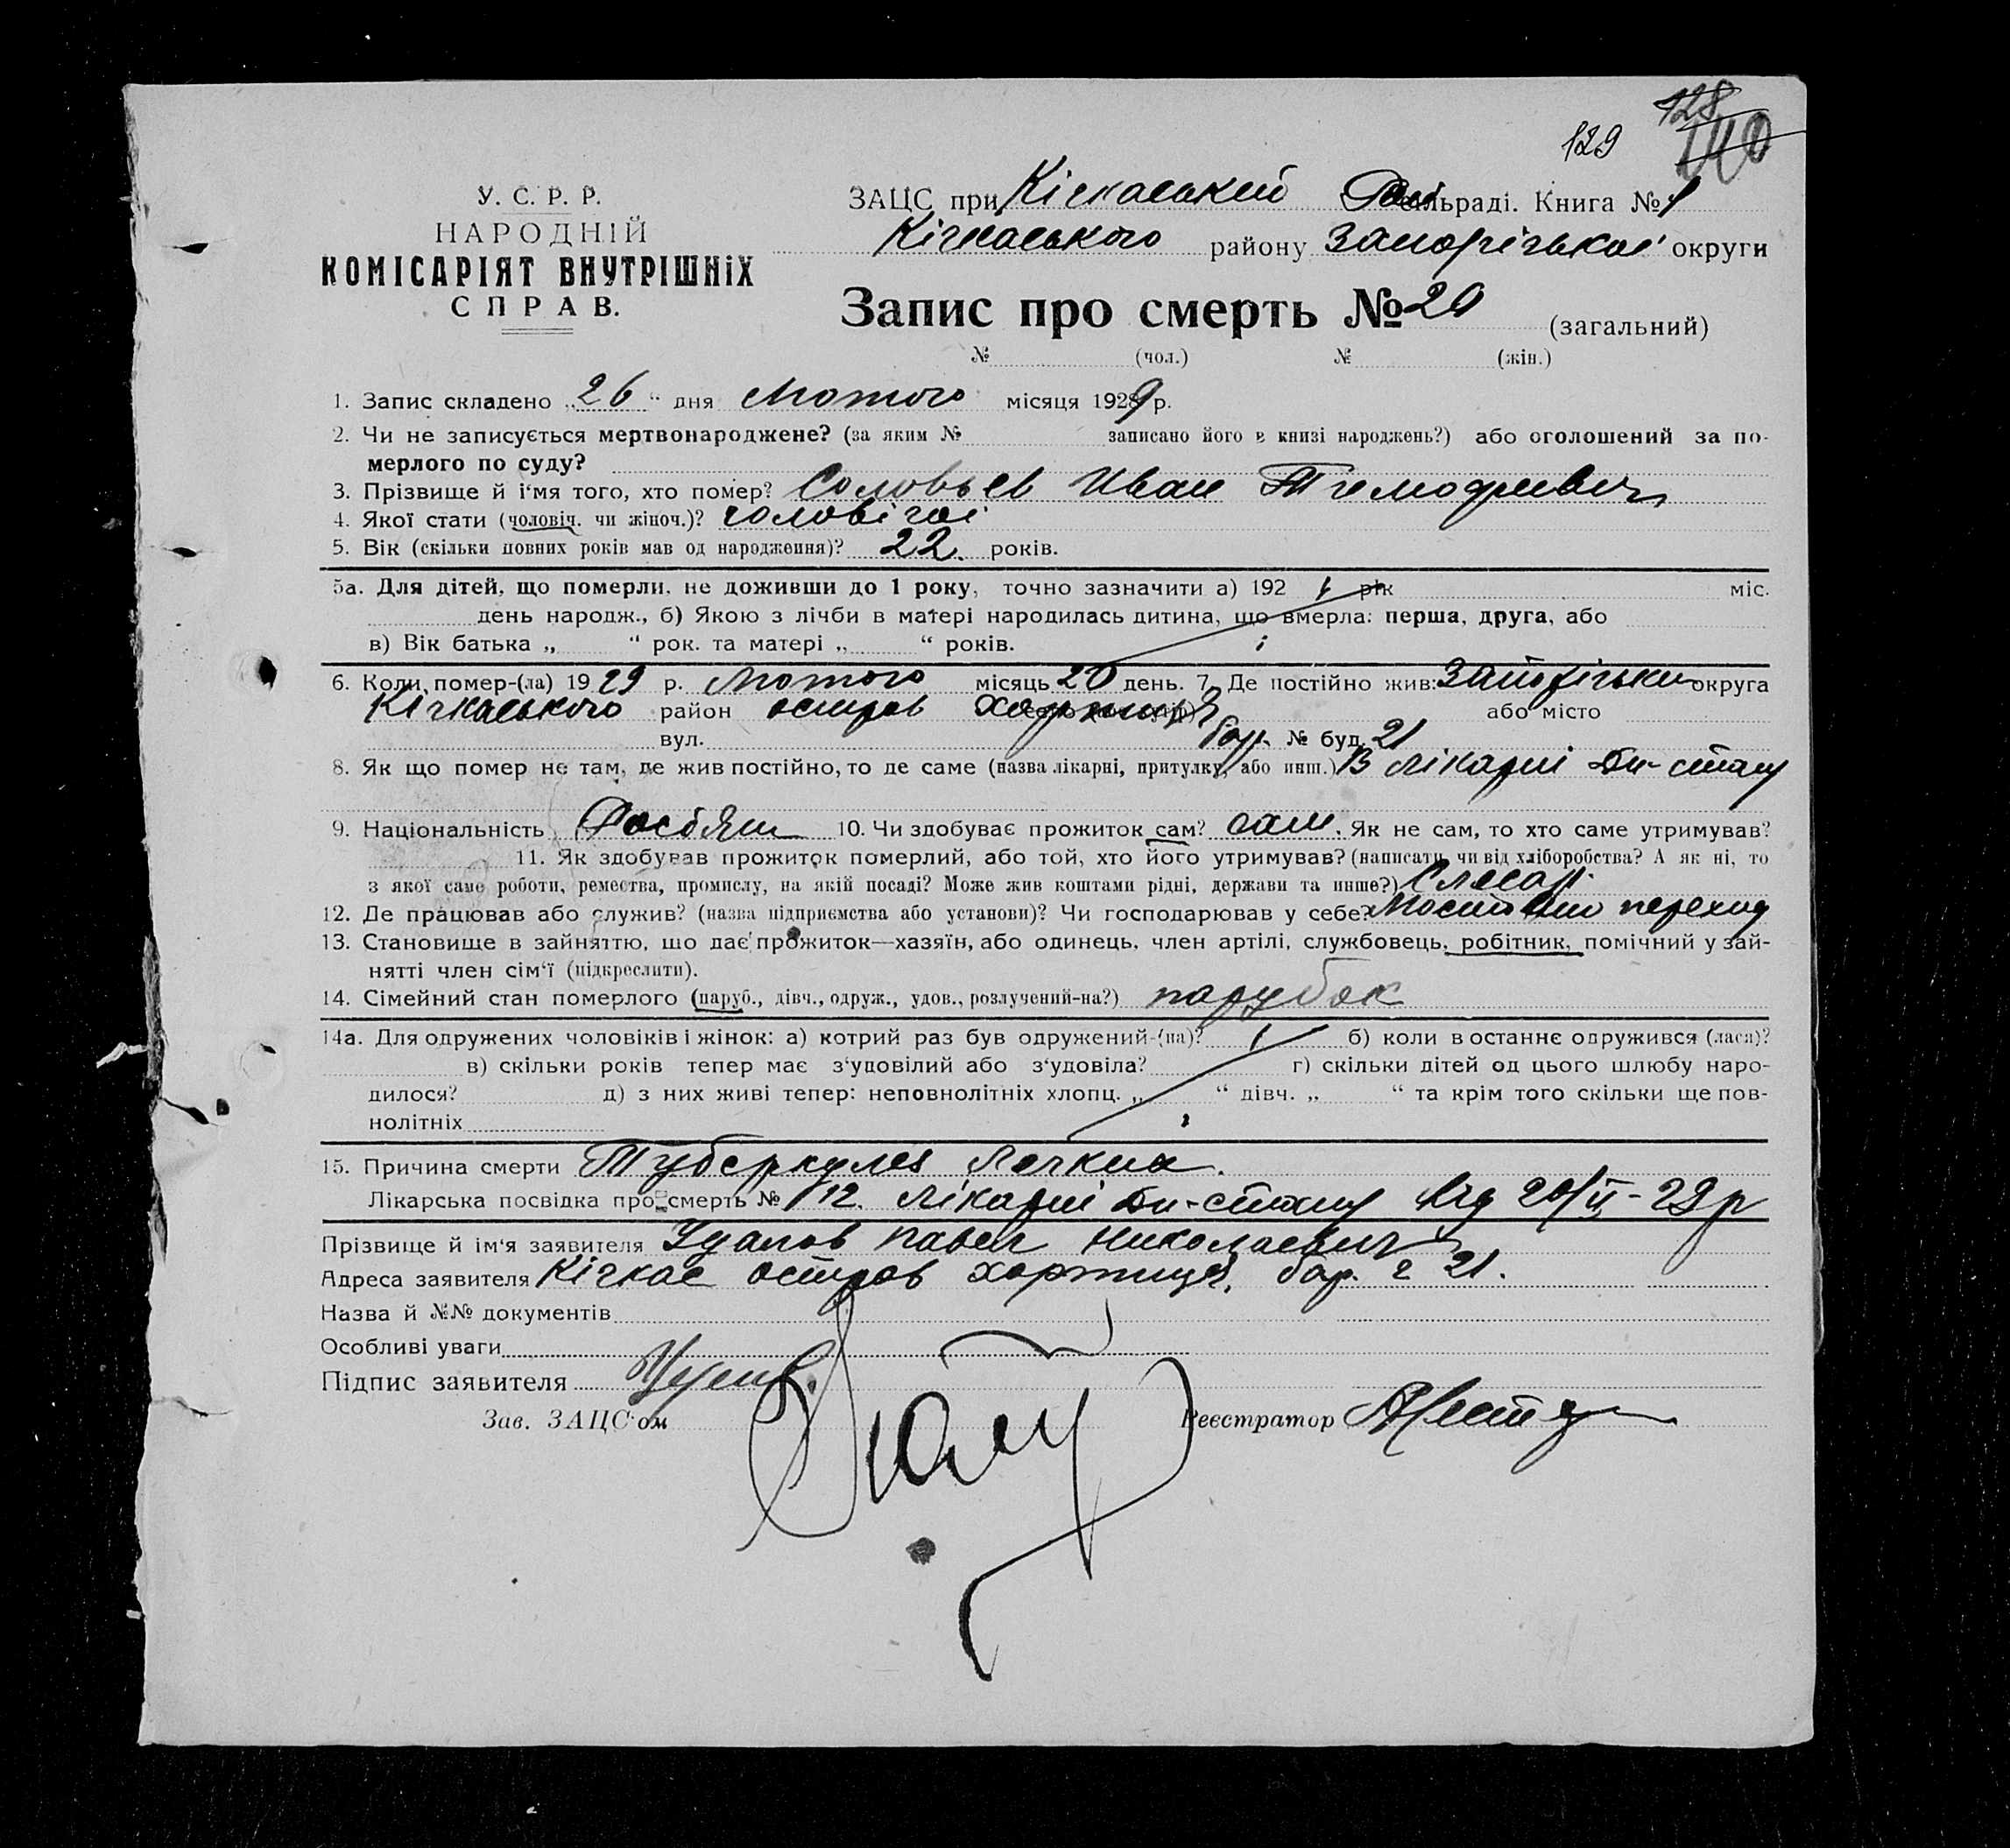 128
129 140
У. С. Р. Р.
НАРОДНІЙ
КОМІСАРІЯТ ВНУТРІШНІХ
СПРАВ.
ЗАЦС при Кічкаський сільраді. Книга № 1
Кічкаського району Запорізької округи
Запис про смерть № 20 (загальний)
№ (чол.) № (жін.)
1. Запис складено „26“ дня Лютого місяця 1929 р.
2. Чи не записується мертвонароджене? (за яким № записано його в книзі народжень?) або оголошений за по-
мерлого по суду?
3. Прізвище й і'мя того, хто помер? Соловьев Иван Тимофиевич
4. Якої стати (чоловіч. чи жіноч.)? чоловічої
5. Вік (скільки повних років мав од народження)? 22. років.
5а. Для дітей, що померли, не доживши до 1 року, точно зазначити а) 192 рік міс.
день народж., б) Якою з лічби в матері народилась дитина, що вмерла: перша, друга, або
в) Вік батька „ “ рок. та матері „ “ років.
6. Коли помер-(ла) 1929 р. Лютого місяць 20 день. 7. Де постійно жив: Запорізьки округа
Кічкаського район остров Хортиця або місто
вул. бар. № буд. 21
8. Як що помер не там, де жив постійно, то де саме (назва лікарні, притулку, або инш.) В лікарні Дн-стану
9. Національність Росіян 10. Чи здобуває прожиток сам? сам. Як не сам, то хто саме утримував?
11. Як здобував прожиток померлий, або той, хто його утримував? (написати, чи від хліборобства? А як ні, то
з якої саме роботи, ремества, промислу, на якій посаді? Може жив коштами рідні, держави та инше?) Слесарь
12. Де працював або служив? (назва підприємства або установи)? Чи господарював у себе? переход
13. Становище в зайняттю, що дає прожиток—хазяїн, або одинець, член артілі, службовець, робітник, помічний у зай-
нятті член сім'ї (підкреслити).
14. Сімейний стан померлого (паруб., дівч., одруж., удов., розлучений-на?) парубок
14а. Для одружених чоловіків і жінок: а) котрий раз був одружений-(на)? б) коли в останнє одружився (лася)?
в) скільки років тепер має з'удовілий або з'удовіла? г) скільки дітей од цього шлюбу наро-
дилося? д) з них живі тепер: неповнолітніх хлопц. „ “ дівч. „ “ та крім того скільки ще пов-
нолітніх
15. Причина смерти Туберкулез Легких.
Лікарська посвідка про смерть № 112. лікарні Дн-стану від 20/II-29р
Прізвище й ім'я заявителя Удалов Павел Николаевич
Адреса заявителя Кічкас остров хортиця, бар. 2 21.
Назва й №№ документів
Особливі уваги
Підпис заявителя
Зав. ЗАЦС'ом Реєстратор